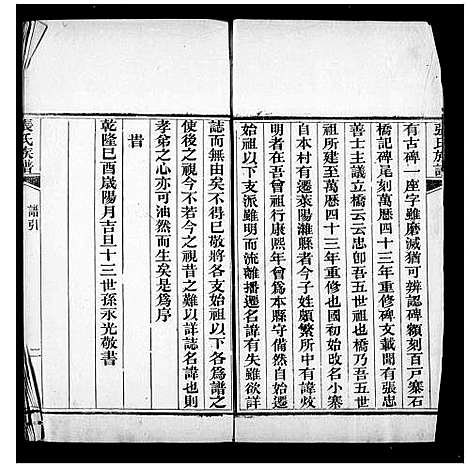 張氏族譜
有古碑一座字雖磨滅猶可辨認碑額刻百戶寨石
橋記碑尾刻萬曆四十三年重修碑文載聞有張忠
善士主議立橋云云忠卽吾五世祖也橋乃吾五世
祖所建至萬曆四十三年重修也國初始改名小寨
自本村有遷萊陽濰縣者今子姓頗繁所中有諱炇
明者在吾曾祖行康熙年曾爲本縣守備然自始祖
始以下支派雖明而流離播遷名諱有失雖欲詳
誌而無由矣不得已敬將各支始祖以下各爲譜之
使後之視今不若今之視昔之難以詳誌名諱也則
孝弟之心亦可油然而生矣是爲序
昔
乾隆己酉歲陽月吉旦十三世孫永光敬書
張氏族譜
譜引
一